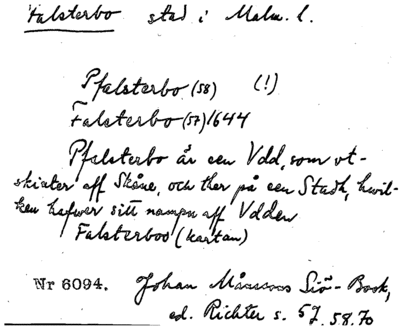 Falsterbo stad i Malm. l.
Pfalsterbo (58) (!)
Falsterbo (57) 1644
Pfalsterbo är een Vdd, som vt-
skiuter aff Skåne, och ther på een Stadh, hwil-
ken hafwer sitt nampn aff Vdden
Falsterboo (kartan)
Nr 6094. Johan Månssons Siö-Book,
ed. Richter s. 57. 58. 70